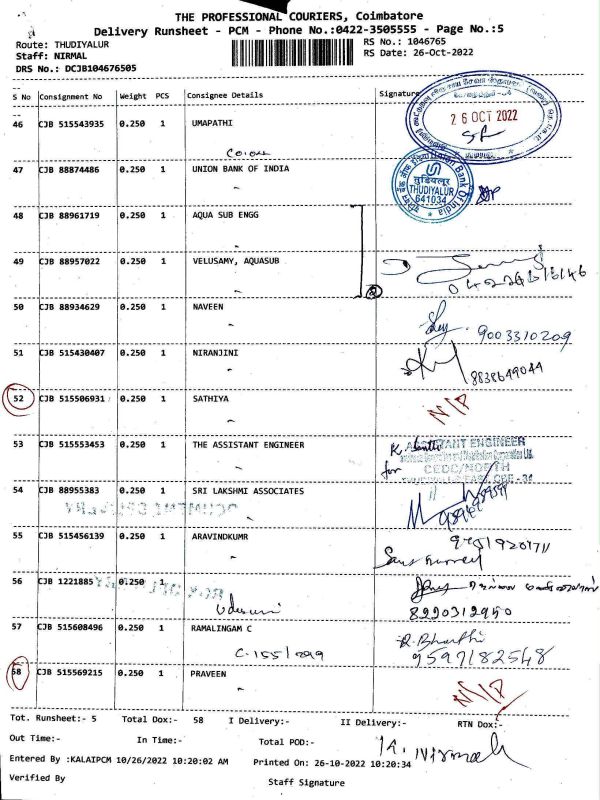 THE PROFESSIONAL COURIERS, Coimbatore
Delivery Runsheet - PCM - Phone No.:0422-3505555 - Page No.:5
Route: THUDIYALUR
RS No.: 1046765
Staff: NIRMAL
RS Date: 26-Oct-2022
DRS No.: DCJB104676505
S No Consignment No Weight PCS Consignee Details Signature
46 CJB 515543935 0.250 1 UMAPATHI
26 OCT 2022
47 CJB 88874486 0.250 1 UNION BANK OF INDIA
Union Bank Of India
THUDIYALUR
641034
48 CJB 88961719 0.250 1 AQUA SUB ENGG
49 CJB 88957022 0.250 1 VELUSAMY, AQUASUB
50 CJB 88934629 0.250 1 NAVEEN
9003310209
51 CJB 515430407 0.250 1 NIRANJINI
8838649044
52 CJB 515506931 0.250 1 SATHIYA
N/A
53 CJB 515553453 0.250 1 THE ASSISTANT ENGINEER
ASSISTANT ENGINEER
for
CEDC/NORTH
54 CJB 88955383 0.250 1 SRI LAKSHMI ASSOCIATES
55 CJB 515456139 0.250 1 ARAVINDKUMR
56 CJB 1221885 0.250 1
8220312950
57 CJB 515608496 0.250 1 RAMALINGAM C
R. Bharthi
C-155/299
9597182548
58 CJB 515569215 0.250 1 PRAVEEN
N/A
Tot. Runsheet:- 5 Total Dox:- 58 I Delivery:- II Delivery:- RTN Dox:-
Out Time:- In Time:- Total POD:-
K. Nirmal
Entered By :KALAIPCM 10/26/2022 10:20:02 AM Printed On: 26-10-2022 10:20:34
Verified By Staff Signature